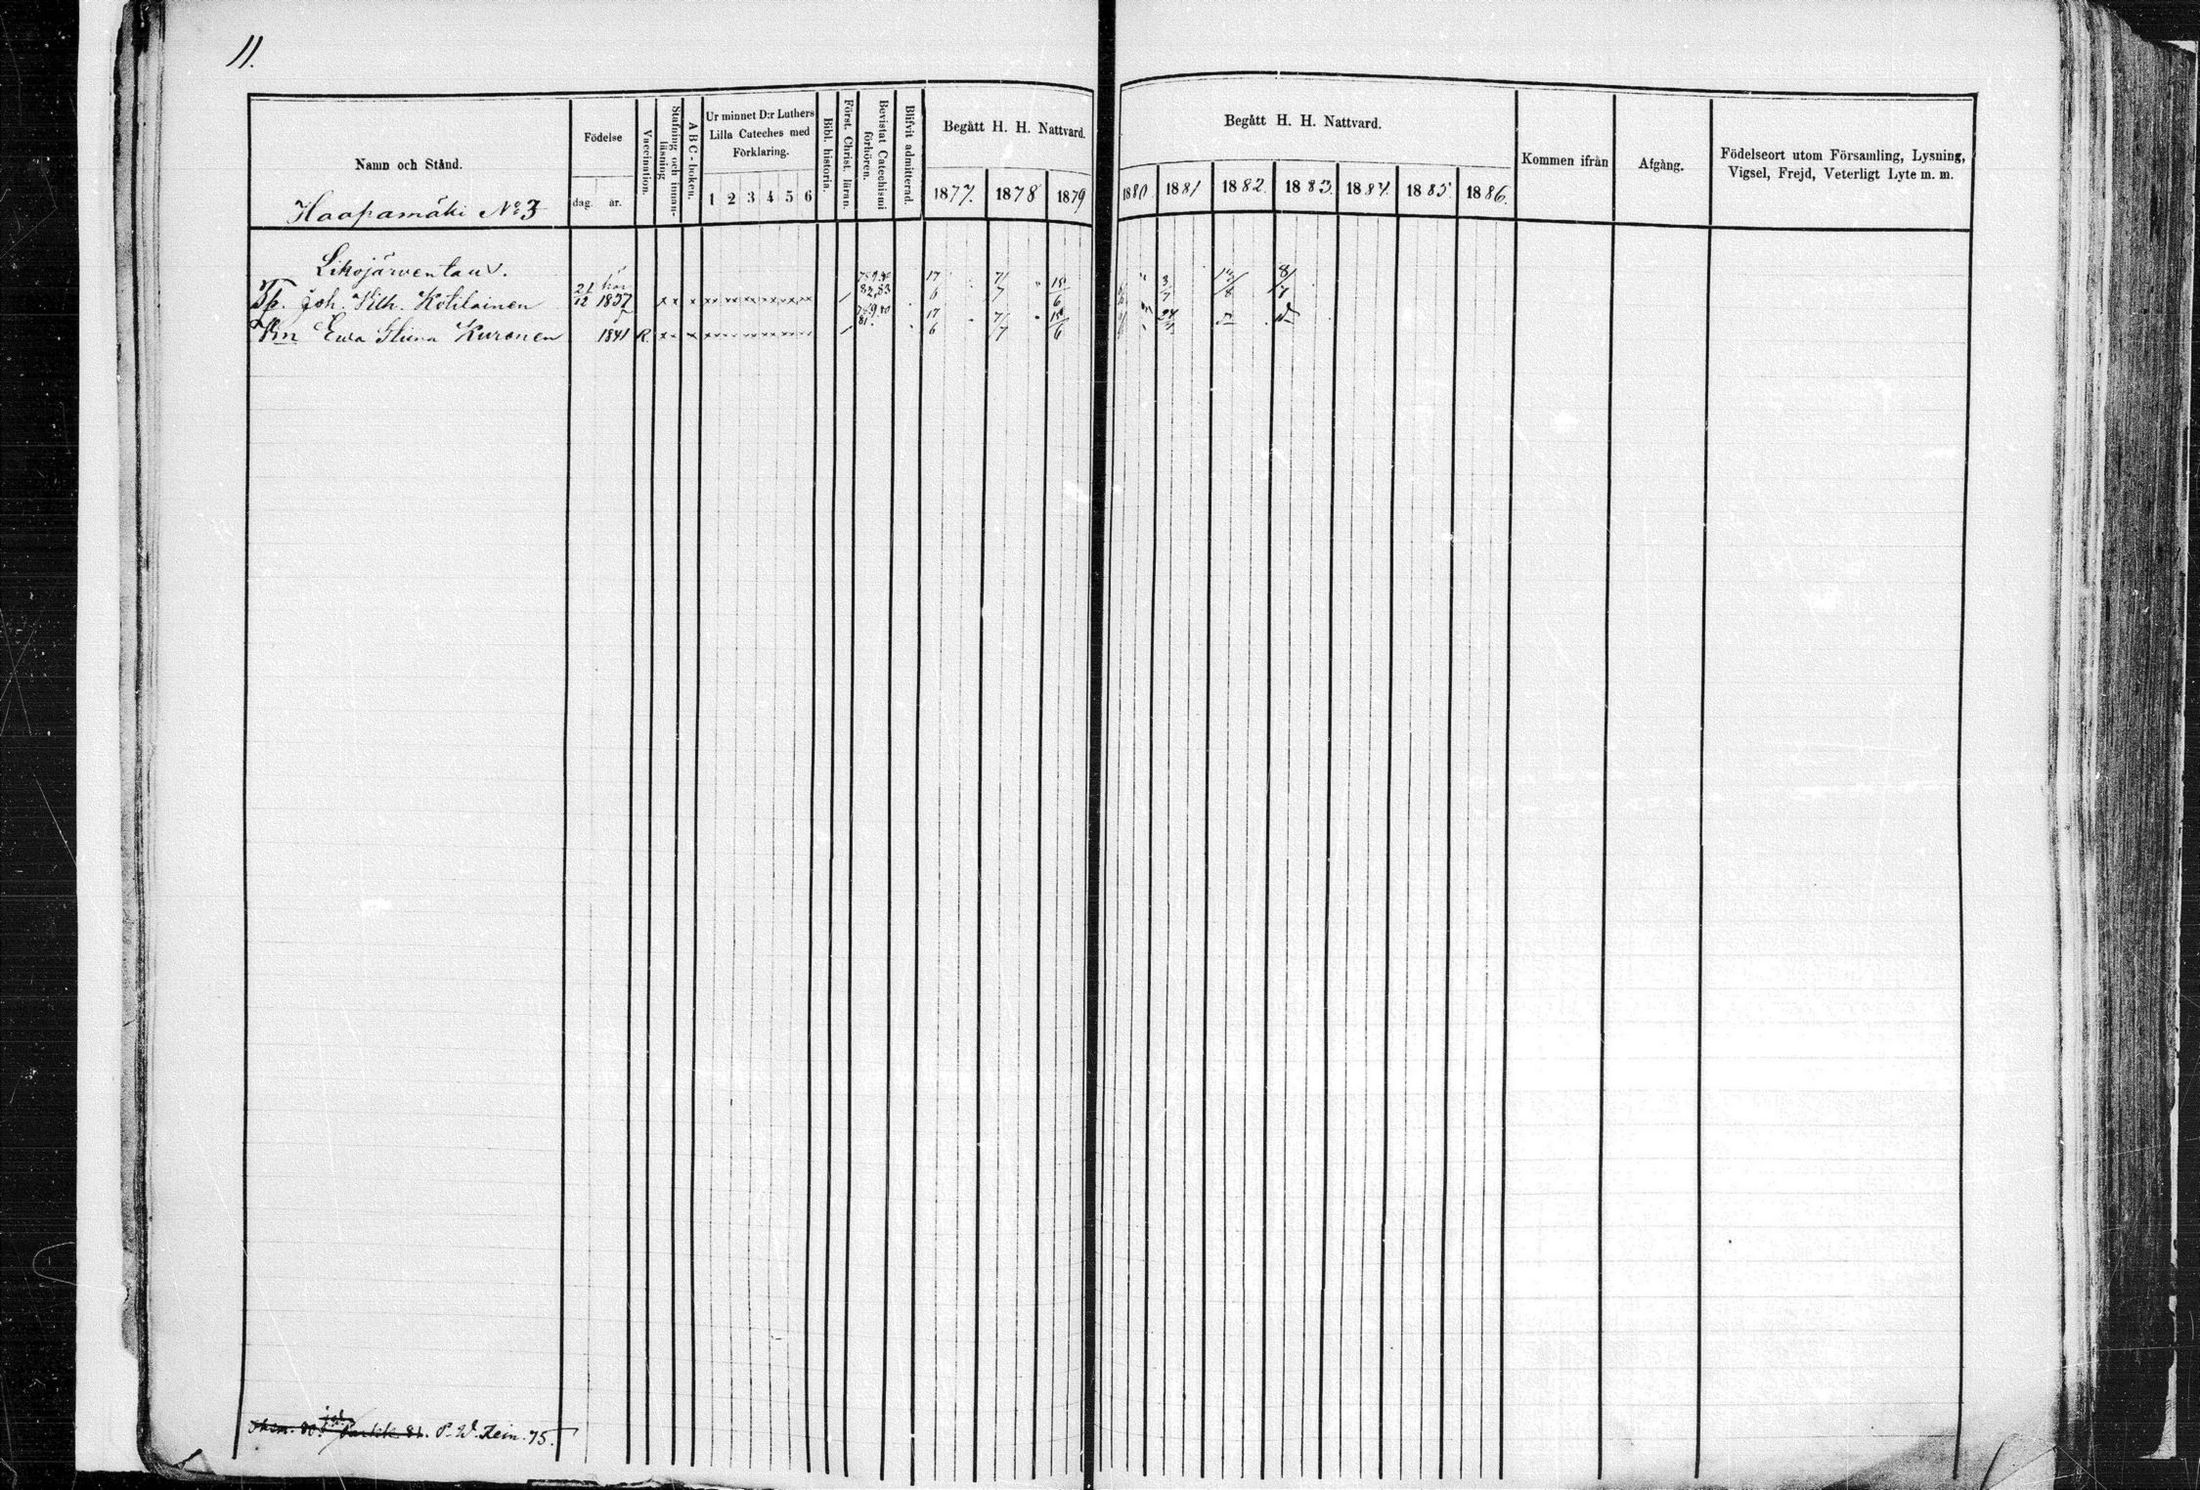 11.
Namn och Stånd.
Haapamäki No 3
Födelse
dag. år.
Vaccination.
Stafning och innanläsning
ABC-boken.
Ur minnet D:r Luthers
Lilla Cateches med
Förklaring.
1 2 3 4 5 6
Bibl. historia.
Först. Christ. läran.
Bevistat Catechismi
förhören.
Blifvit admitterad.
Begått H. H. Nattvard.
1877. 1878 1879
Begått H. H. Nattvard.
1880 1881 1882. 1883. 1884. 1885. 1886.
Kommen ifrån
Afgång.
Födelseort utom Församling, Lysning,
Vigsel, Frejd, Veterligt Lyte m. m.
Joh. Vilh. Kotilainen 21/12 1837 82,83 17/6 7/7 15/6 3/7 8/7
Ewa Stiina Kuronen 1841 R. 81. 17/6 7/7 15/6
75.